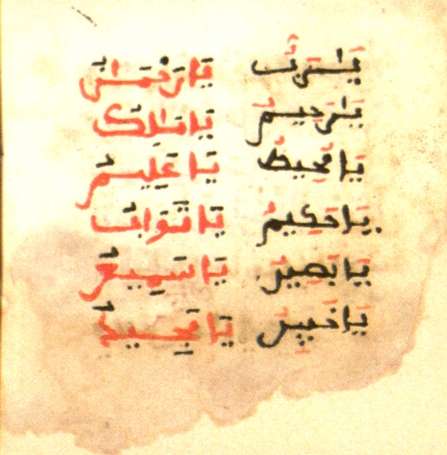 يَا رَبُّ يَا رَحْمَانُ
يَا رَحِيمُ يَا مَالِكُ
يَا مُحِيطُ يَا عَلِيمُ
يَا حَكِيمُ يَا تَوَّابُ
يَا بَصِيرُ يَا سَمِيعُ
يَا خَبِيرُ يَا مَجِيدُ